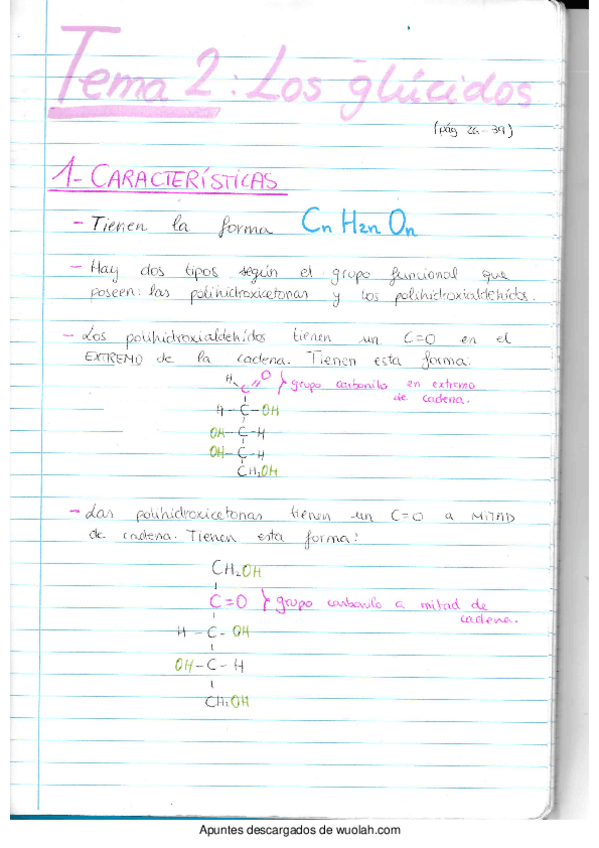 Tema 2: Los glúcidos
(pág 26-39)
1- CARACTERÍSTICAS
- Tienen la forma Cn H2n On
- Hay dos tipos según el grupo funcional que
poseen: las polihidroxicetonas y los polihidroxialdehídos.
- Los polihidroxialdehídos tienen un C=O en el
EXTREMO de la cadena. Tienen esta forma:
H C O } grupo carbonilo en extremo
de cadena.
H - C - OH
OH - C - H
OH - C - H
CH2OH
- Las polihidroxicetonas tienen un C=O a MITAD
de cadena. Tienen esta forma:
CH2OH
C=O } grupo carbonilo a mitad de
cadena.
H - C - OH
OH - C - H
CH2OH
Apuntes descargados de wuolah.com